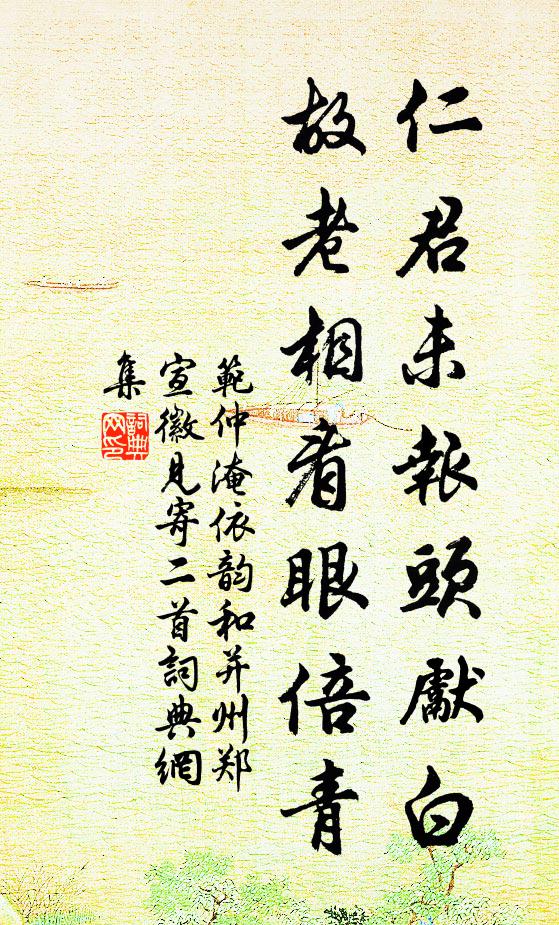 仁君未報頭獻白
故老相看眼倍青
範仲淹依韵和并州郑
宣徽見寄二首詞典網
集
詞典網印